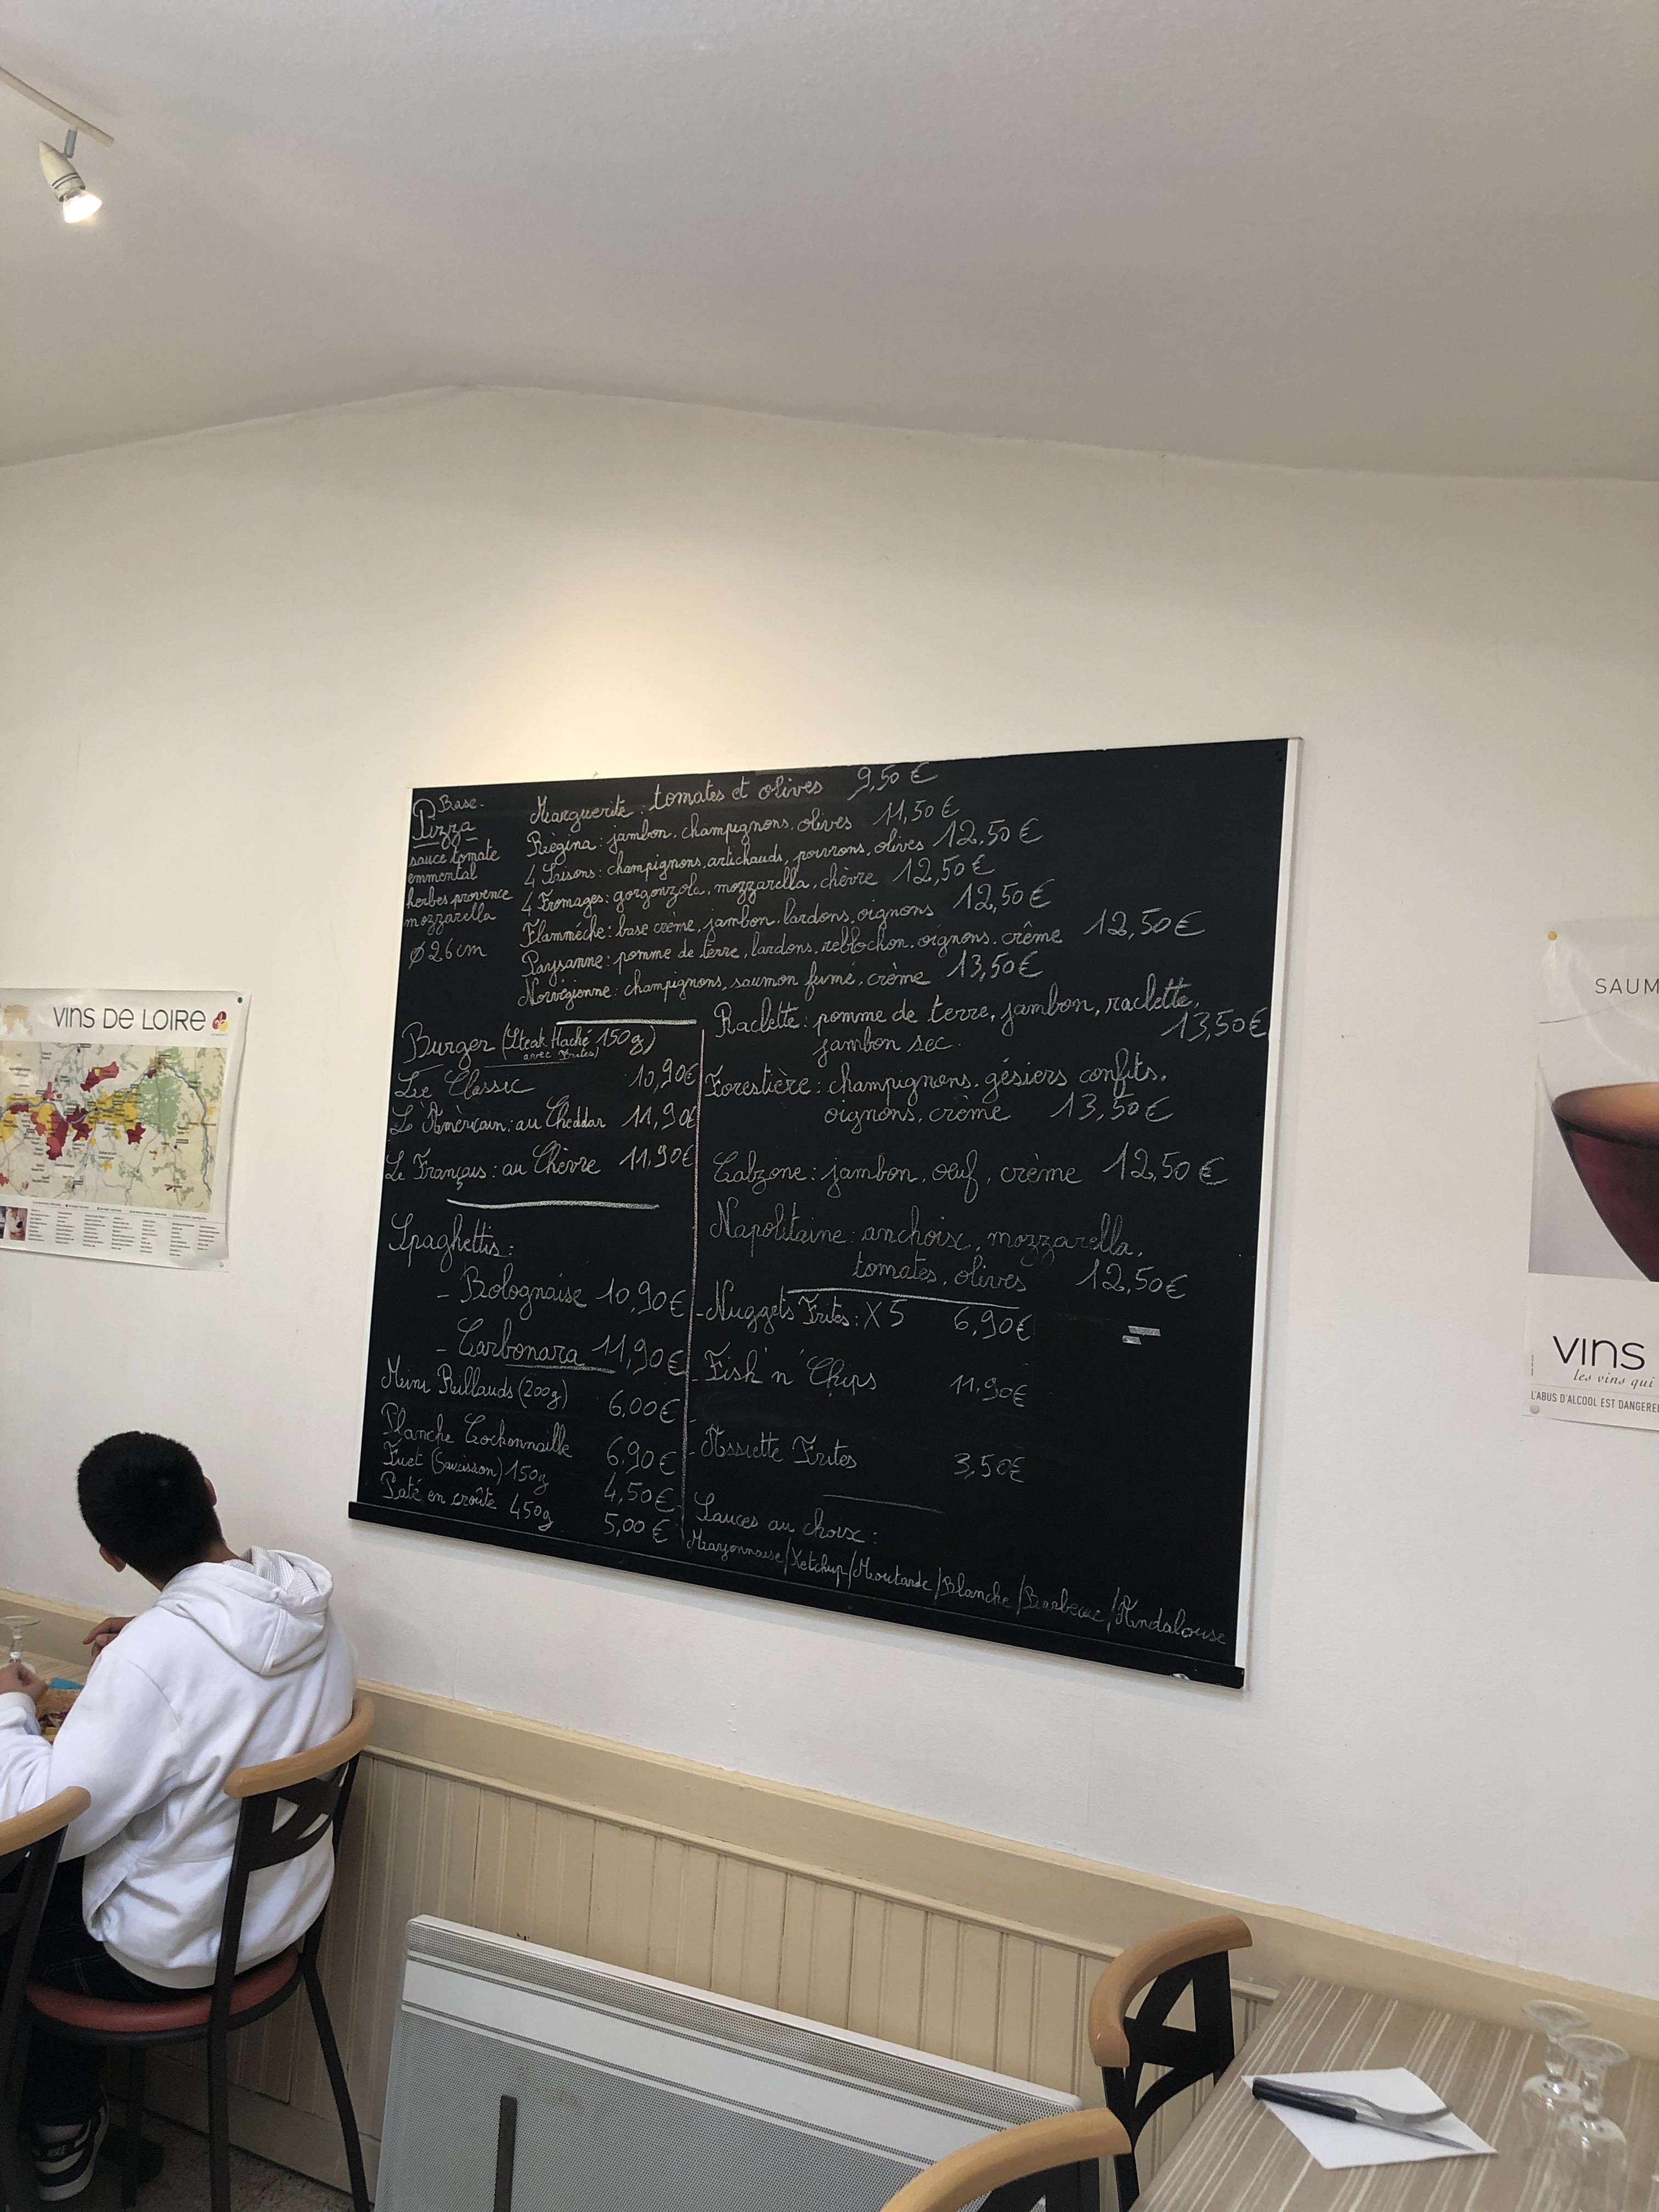 Base
Pizza
sauce tomate
emmental
herbes provence
mozzarella
Ø 26 cm
Marguerite : tomates et olives 9,50 €
Règina : jambon, champignons, olives 11,50 €
4 Saisons : champignons, artichauds, poivrons, olives 12,50 €
4 Fromages : gorgonzola, mozzarella, chèvre 12,50 €
Flammèche : base crème, jambon, lardons, oignons 12,50 €
Paysanne : pomme de terre, lardons, reblochon, oignons, crême 12,50 €
Norvégienne : champignons, saumon fumé, crème 13,50 €
Raclette : pomme de terre, jambon, raclette,
jambon sec. 13,50 €
Forestière : champignons, gésiers confits,
oignons, crème 13,50 €
Calzone : jambon, oeuf, crème 12,50 €
Napolitaine : anchoix, mozzarella,
tomates, olives 12,50 €
Burger (Steak Haché 150g)
avec Frites)
Le Classic 10,90 €
L'Amèricain : au Cheddar 11,90 €
Le Français : au Chèvre 11,90 €
Spaghettis :
- Bolognaise 10,90 €
- Carbonara 11,90 €
Mini Rillauds (200g) 6,00 €
Planche Cochonnaille 6,90 €
Fuet (Saucisson) 150g 4,50 €
Paté en croûte 450g 5,00 €
- Nuggets Frites : X 5 6,90 €
- Fish'n'Chips 11,90 €
- Assiette Frites 3,50 €
Sauces au choix :
Mayonnaise/Ketchup/Moutarde/Blanche/Barbecue/Andalouse
VINS DE LOIRE
SAUM
VINS
les vins qui
L'ABUS D'ALCOOL EST DANGERE